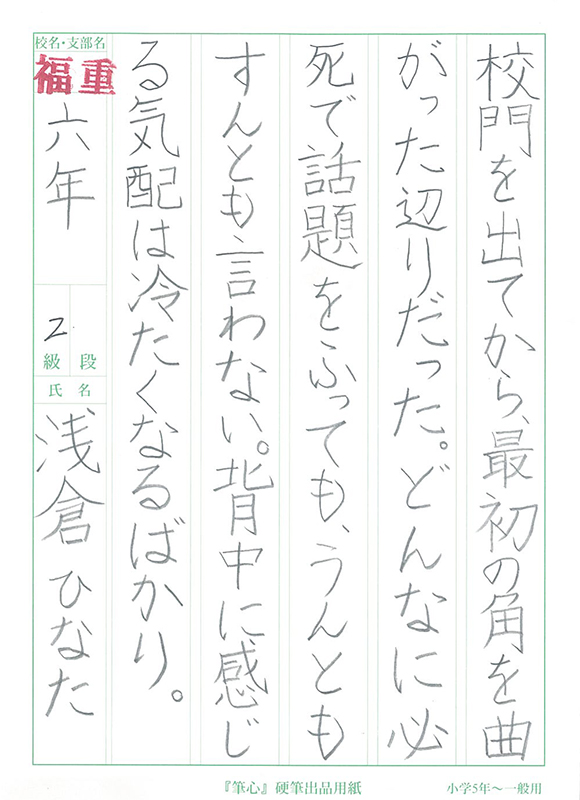 校門を出てから、最初の角を曲
がった辺りだった。どんなに必
死で話題をふっても、うんとも
すんとも言わない。背中に感じ
る気配は冷たくなるばかり。
校名・支部名
福重
六年
2
級 段
氏 名
浅倉ひなた
『筆心』硬筆出品用紙
小学5年～一般用